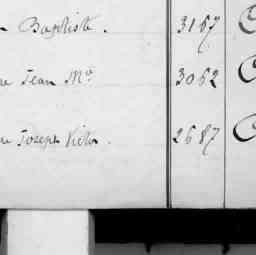 Baptiste. 3167
Jean M.ie 3062
Joseph Victor 2687